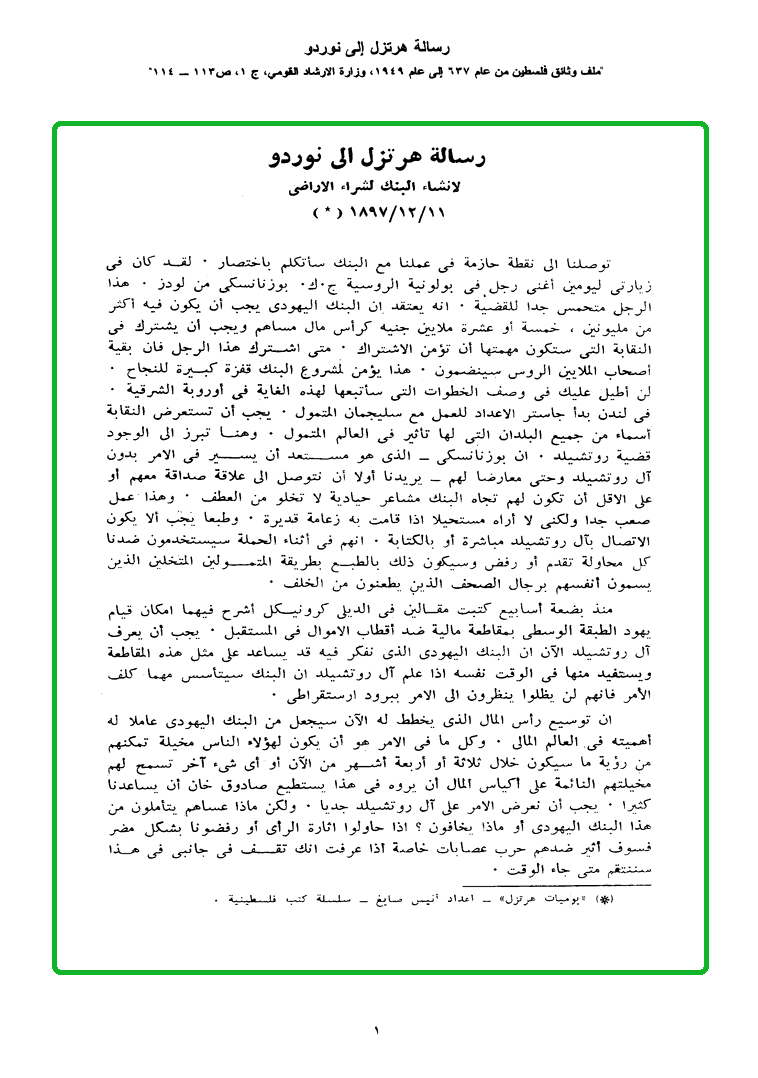 رسالة هرتزل إلى نوردو
"ملف وثائق فلسطين من عام ٦٣٧ إلى عام ١٩٤٩، وزارة الارشاد القومي، ج ١، ص١١٣ – ١١٤"
رسالة هرتزل الى نوردو
لانشاء البنك لشراء الاراضى
١٨٩٧/١٢/١١ (*)
توصلنا الى نقطة حازمة فى عملنا مع البنك سأتكلم باختصار ٠ لقد كان فى
زيارتى ليومين أغنى رجل فى بولونية الروسية ج٠ك٠ بوزنانسكى من لودز ٠ هذا
الرجل متحمس جدا للقضية ٠ انه يعتقد ان البنك اليهودى يجب أن يكون فيه أكثر
من مليونين ، خمسة أو عشرة ملايين جنيه كرأس مال مساهم ويجب أن يشترك فى
النقابة التى ستكون مهمتها أن تؤمن الاشتراك ٠ متى اشترك هذا الرجل فان بقية
أصحاب الملايين الروس سينضمون ٠ هذا يؤمن لمشروع البنك قفزة كبيرة للنجاح ٠
لن أطيل عليك فى وصف الخطوات التى سأتبعها لهذه الغاية فى أوروبة الشرقية ٠
فى لندن بدأ جاستر الاعداد للعمل مع سليجمان المتمول ٠ يجب أن تستعرض النقابة
أسماء من جميع البلدان التى لها تأثير فى العالم المتمول ٠ وهنا تبرز الى الوجود
قضية روتشيلد ٠ ان بوزنانسكى ــ الذى هو مستعد أن يسير فى الامر بدون
آل روتشيلد وحتى معارضا لهم ــ يريدنا أولا أن نتوصل الى علاقة صداقة معهم أو
على الاقل أن تكون لهم تجاه البنك مشاعر حيادية لا تخلو من العطف ٠ وهذا عمل
صعب جدا ولكنى لا أراه مستحيلا اذا قامت به زعامة قديرة ٠ وطبعا يجب ألا يكون
الاتصال بآل روتشيلد مباشرة أو بالكتابة ٠ انهم فى أثناء الحملة سيستخدمون ضدنا
كل محاولة تقدم أو رفض وسيكون ذلك بالطبع بطريقة المتمولين المتخلين الذين
يسمون أنفسهم برجال الصحف الذين يطعنون من الخلف ٠
منذ بضعة أسابيع كتبت مقالين فى الديلى كرونيكل أشرح فيهما امكان قيام
يهود الطبقة الوسطى بمقاطعة مالية ضد أقطاب الاموال فى المستقبل ٠ يجب أن يعرف
آل روتشيلد الآن ان البنك اليهودى الذى نفكر فيه قد يساعد على مثل هذه المقاطعة
ويستفيد منها فى الوقت نفسه اذا علم آل روتشيلد ان البنك سيتأسس مهما كلف
الأمر فانهم لن يظلوا ينظرون الى الامر ببرود ارستقراطى ٠
ان توسيع رأس المال الذى يخطط له الآن سيجعل من البنك اليهودى عاملا له
أهميته فى العالم المالى ٠ وكل ما فى الامر هو أن يكون لهؤلاء الناس مخيلة تمكنهم
من رؤية ما سيكون خلال ثلاثة أو أربعة أشهر من الآن أو أى شىء آخر تسمح لهم
مخيلتهم النائمة على أكياس المال أن يروه فى هذا يستطيع صادوق خان أن يساعدنا
كثيرا ٠ يجب أن نعرض الامر على آل روتشيلد جديا ٠ ولكن ماذا عساهم يتأملون من
هذا البنك اليهودى أو ماذا يخافون ؟ اذا حاولوا اثارة الرأى أو رفضونا بشكل مضر
فسوف أثير ضدهم حرب عصابات خاصة اذا عرفت انك تقف فى جانبى فى هذا
سننتقم متى جاء الوقت ٠
(*) «يوميات هرتزل» ــ اعداد أنيس صايغ ــ سلسلة كتب فلسطينية ٠
١